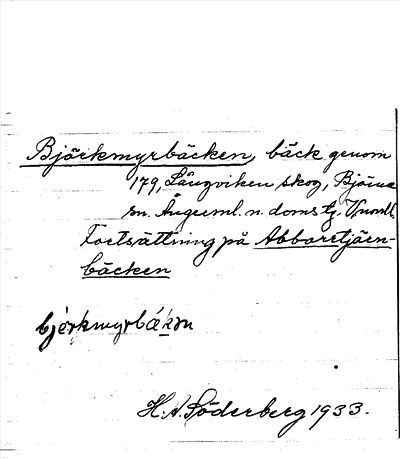 Björkmyrbäcken, bäck genom
179, Långviken skog, Björna
sn. Ångerml. n. doms tg. V.norrl.
Fortsättning på Abborrtjärn-
bäcken
bjérkmyrbäkɛn
H. A. Söderberg 1933.